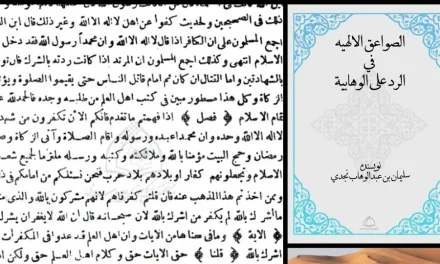 ذلك في الصحيحين ولحديث كفوا عن اهل لا اله الا الله وغير ذلك قال ابن
اجمع المسلمون على ان الكافر اذا قال لا اله الا الله وان محمدا رسول الله فقد دخل
الاسلام انتهى وكذلك اجمع المسلمون ان المرتد اذا كانت ردته بالشرك فان تو
بالشهادتين واما القتال ان كان ثم امام قاتل الناس حتى يقيموا الصلوة ويؤ
الزكاة وكل هذا مسطور مبين في كتب اهل العلم من طلبه وجده فالحمد لله
تمام الاسلام ﴿ فصل ﴾ اذا فهمتم ما تقدم فانكم الآن تكفرون من شهد
لا اله الا الله وحده وان محمدا عبده ورسوله واقام الصلاة وآتى الزكا
رمضان وحج البيت مؤمنا بالله وملائكته وكتبه ورسله ملتزما لجميع شعـ
الاسلام وتجعلونهم كفارا وبلادهم بلاد حرب فنحن نسئلكم من امامكم في
وممن اخذتم هذا المذهب عنه فان قلتم كفرناهم لانهم مشركون بالله والذي منه
ما اشرك بالله لم يكفر من اشرك بالله لان سبحانه قال ان الله لا يغفر ان يشرك
الآية ﴾ وما في معناها من الآيات وان اهل العلم قد عدوا في المكفرات
اشرك بالله ﴿ قلنا ﴾ حق الآيات حق وكلام اهل العلم حق ولكن
الصواعق الالهيه
في
الرد على الوهابية
نویسنده
سليمان بن عبدالوهاب نجدي